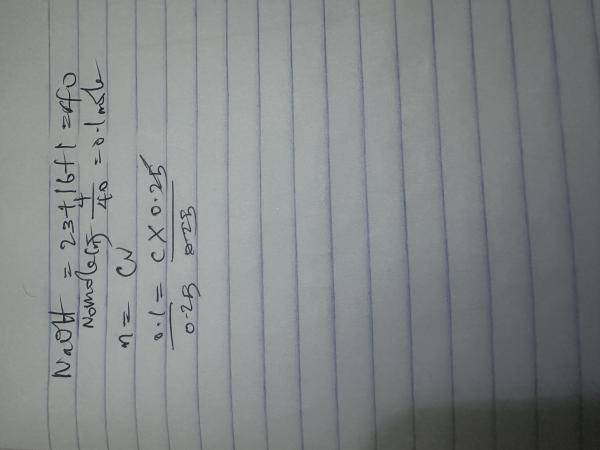 NaOH = 23+16+1 = 40
No mole(n) = 4/40 = 0.1 mole
n = CV
0.1 = C X 0.25
0.25 0.25